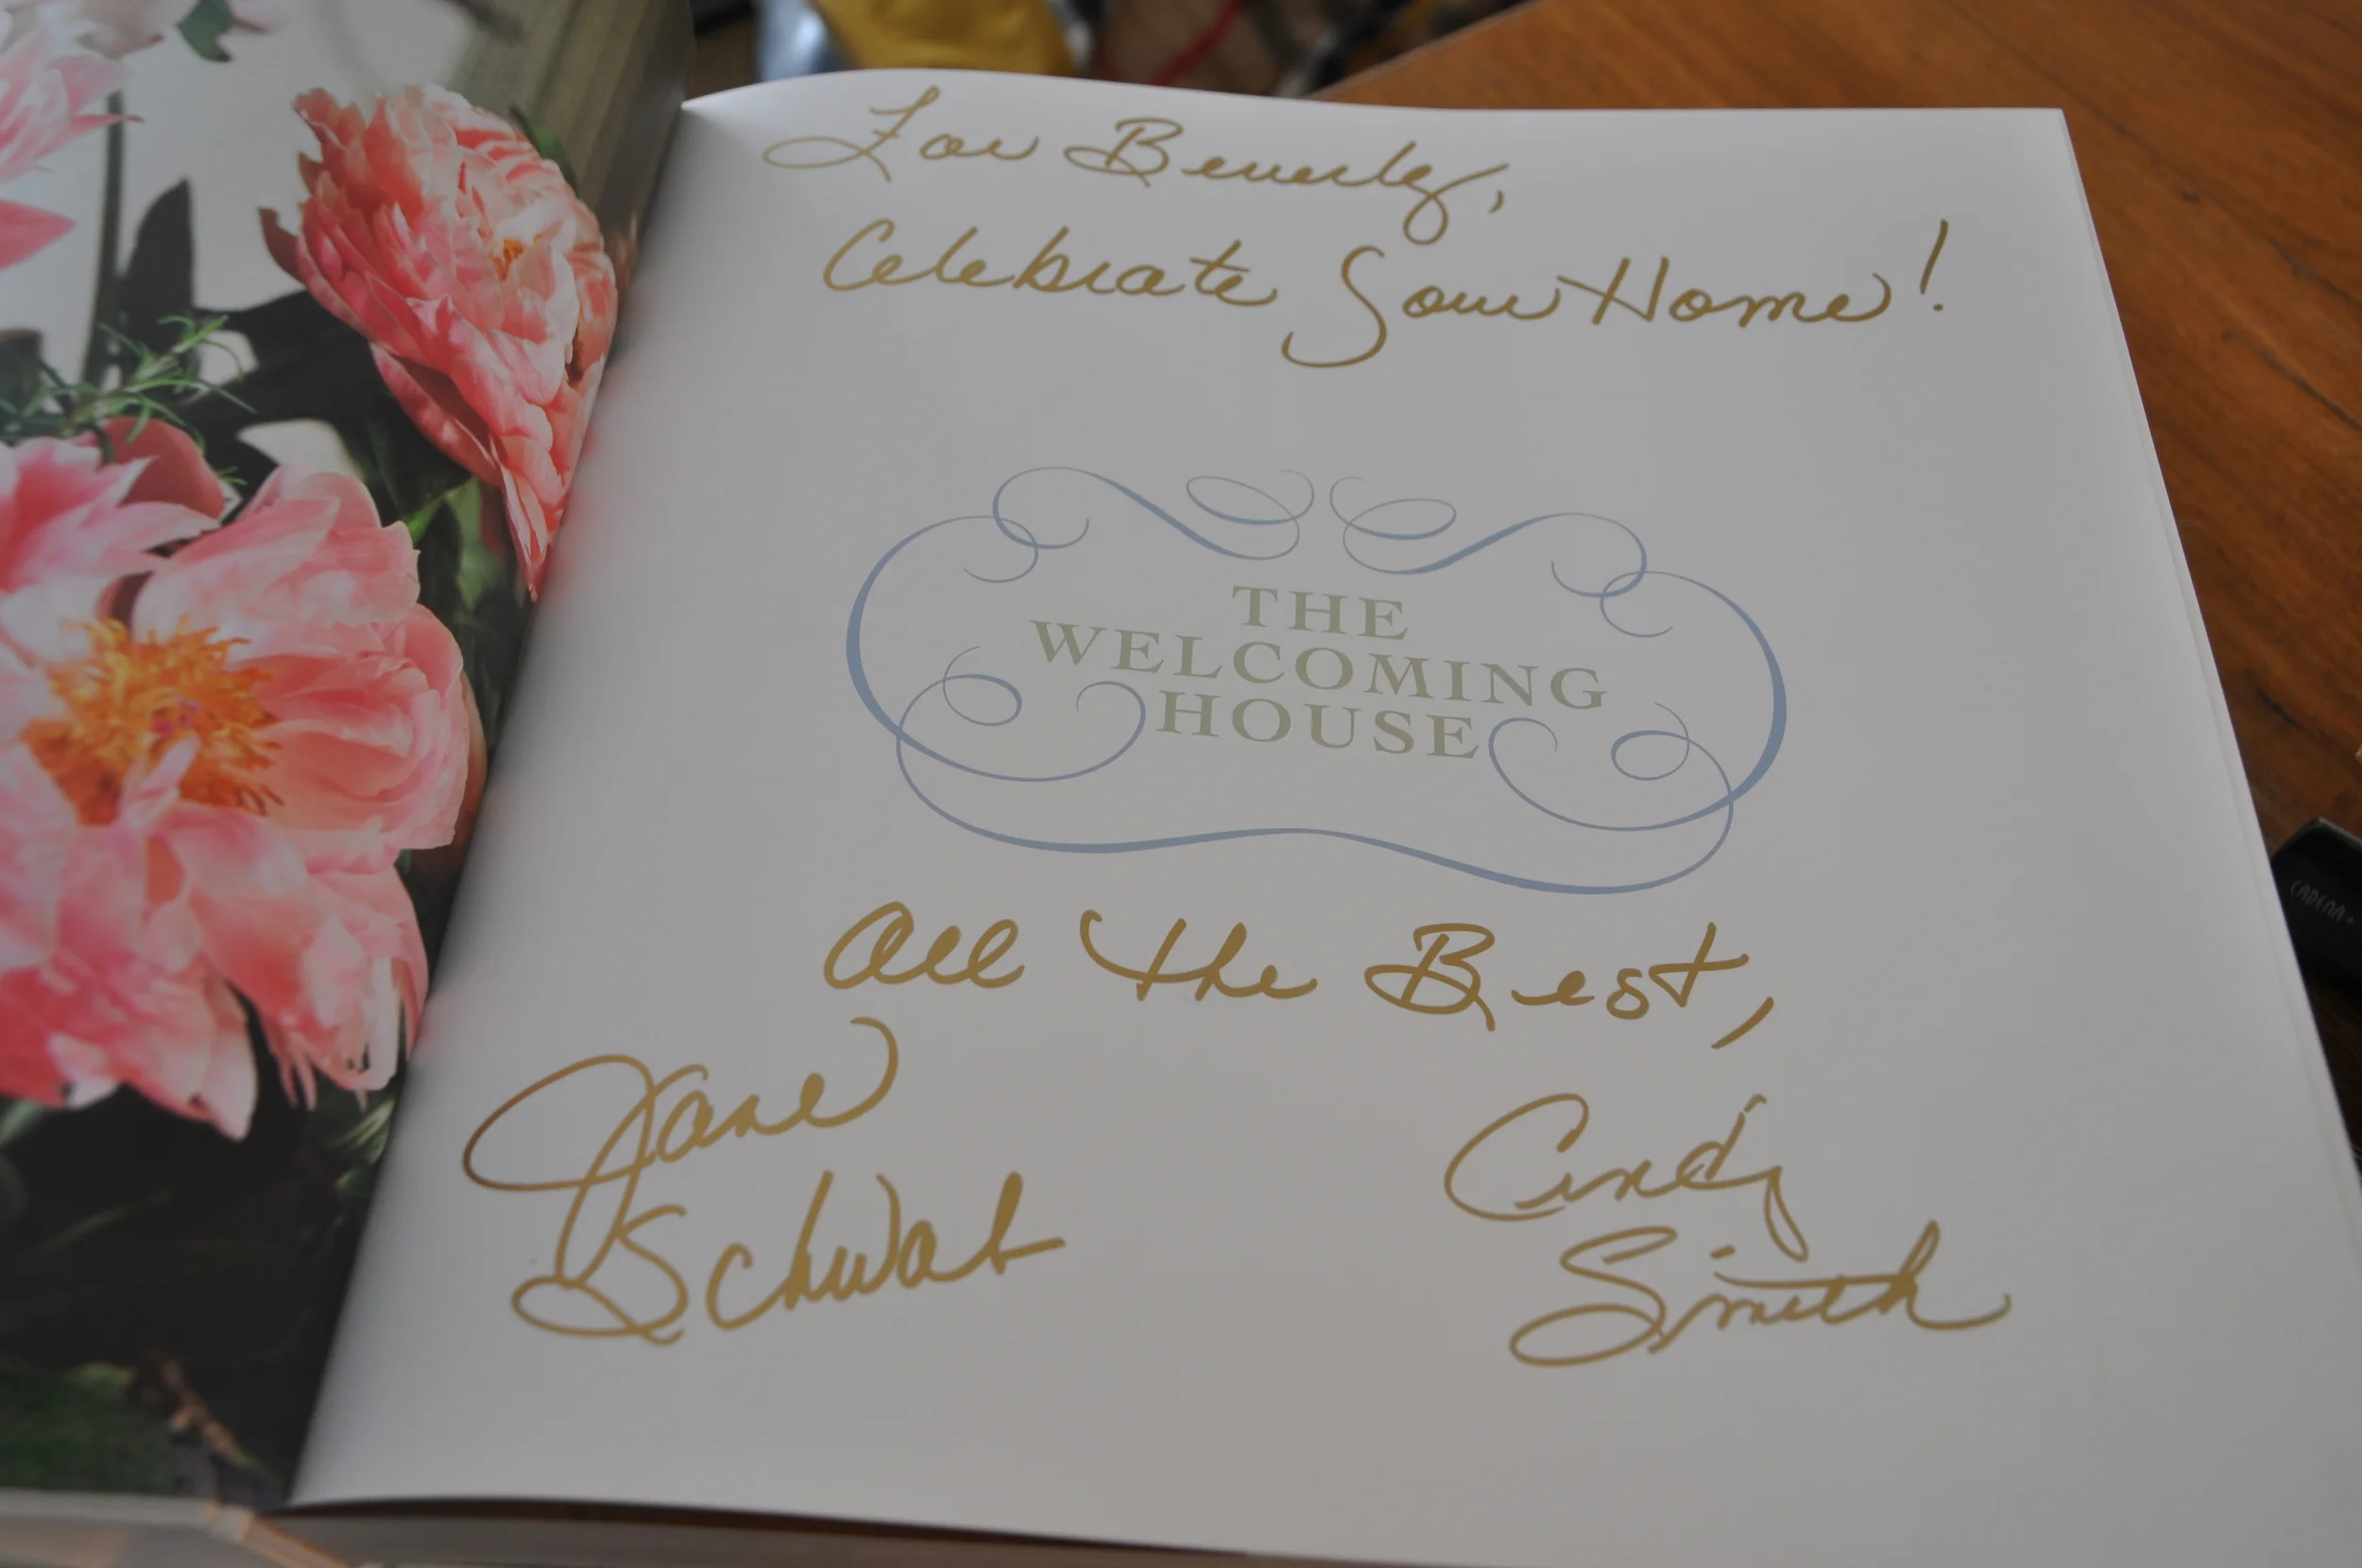 For Beverly,
Celebrate Your Home!
THE
WELCOMING
HOUSE
All the Best,
Jane
Schwab
Cindy
Smith
CADENA+